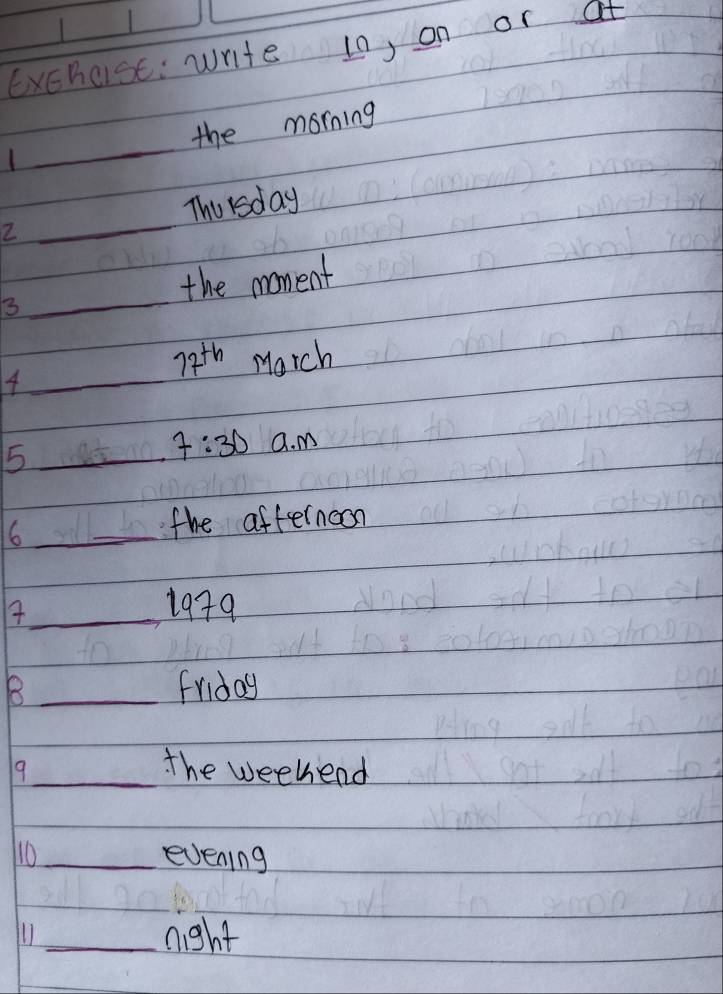 EXERCISE: Write in, on or at
1 ______ the morning
2 ______ Thursday
3 ______ the moment
4 ______ 17th March
5 ______ 7:30 a.m
6 ______ the afternoon
7 ______ 1979
8 ______ Friday
9 ______ the weekend
10 ______ evening
11 ______ night